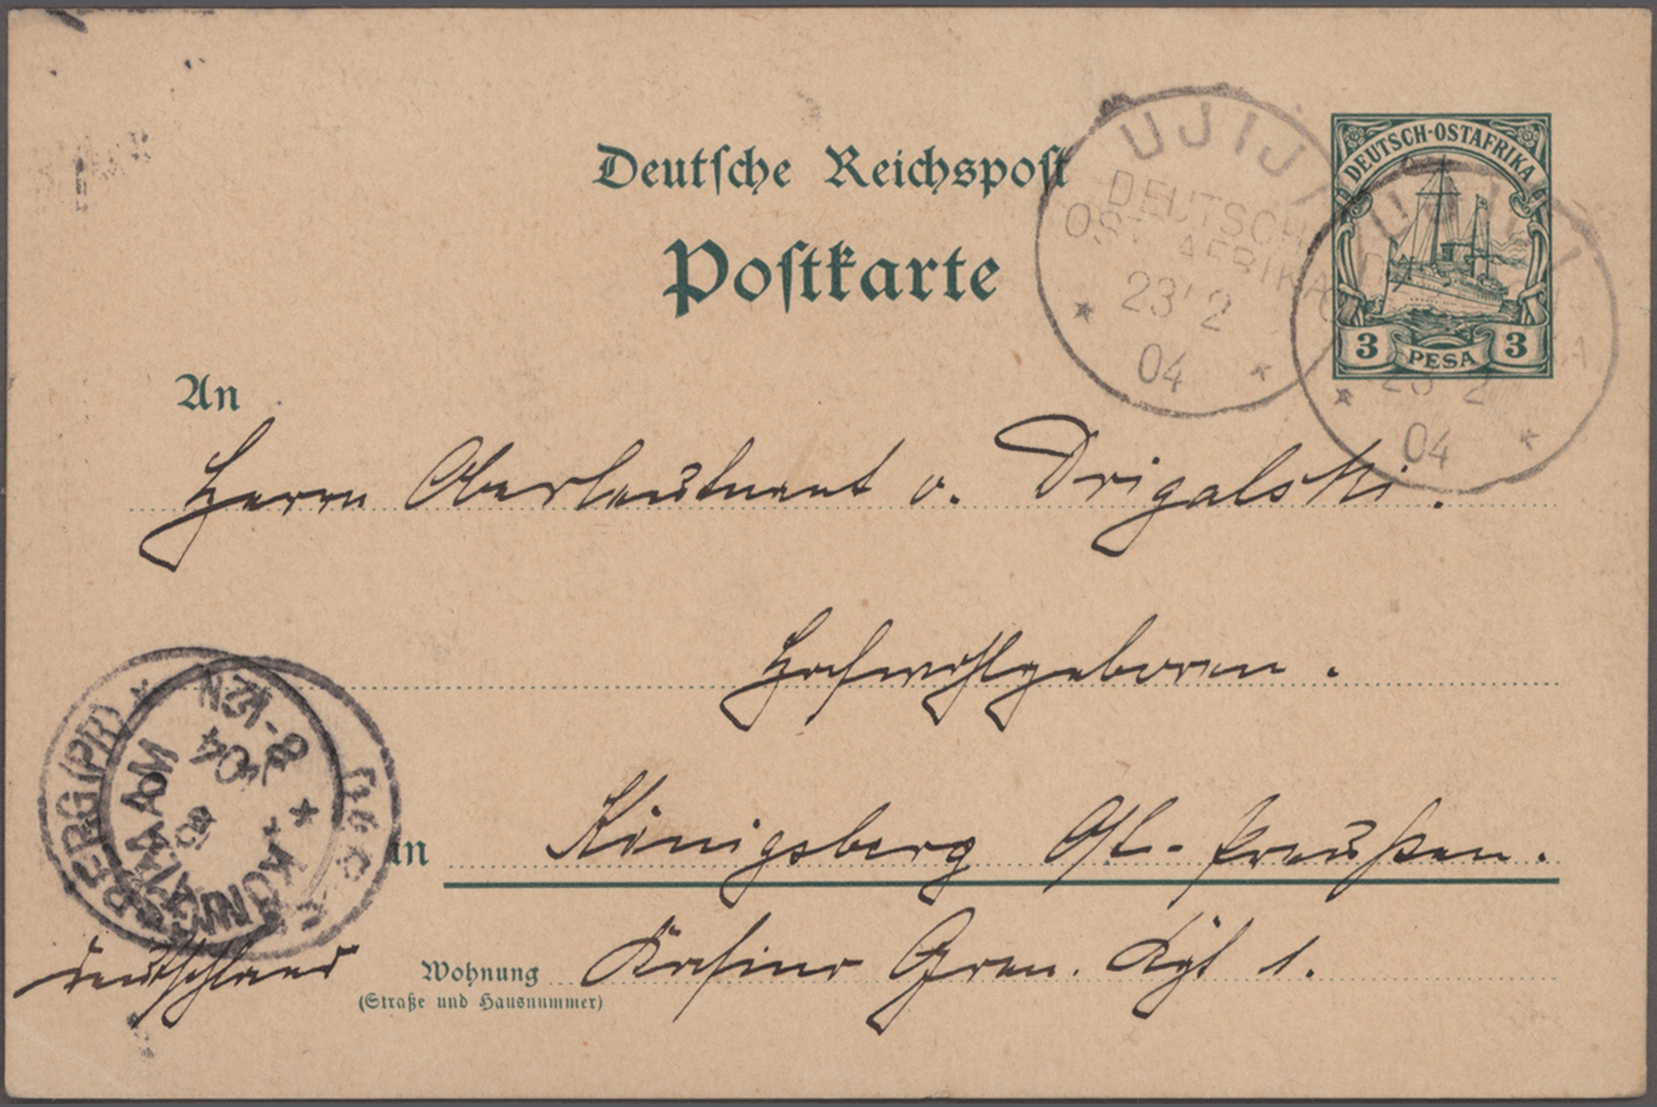 Deutsche Reichspost
Postkarte
DEUTSCH-OSTAFRIKA
3 PESA 3
UJIJI
DEUTSCH
OST AFRIKA
23/2
04
UJIJI
23 2
04
An
Herrn Oberleutnant v. Drigalski.
Hochwohlgeboren.
in Königsberg Ost-Preußen.
Deutschland
Wohnung Kasino Gren. Rgt 1.
(Straße und Hausnummer)
8-12N
04